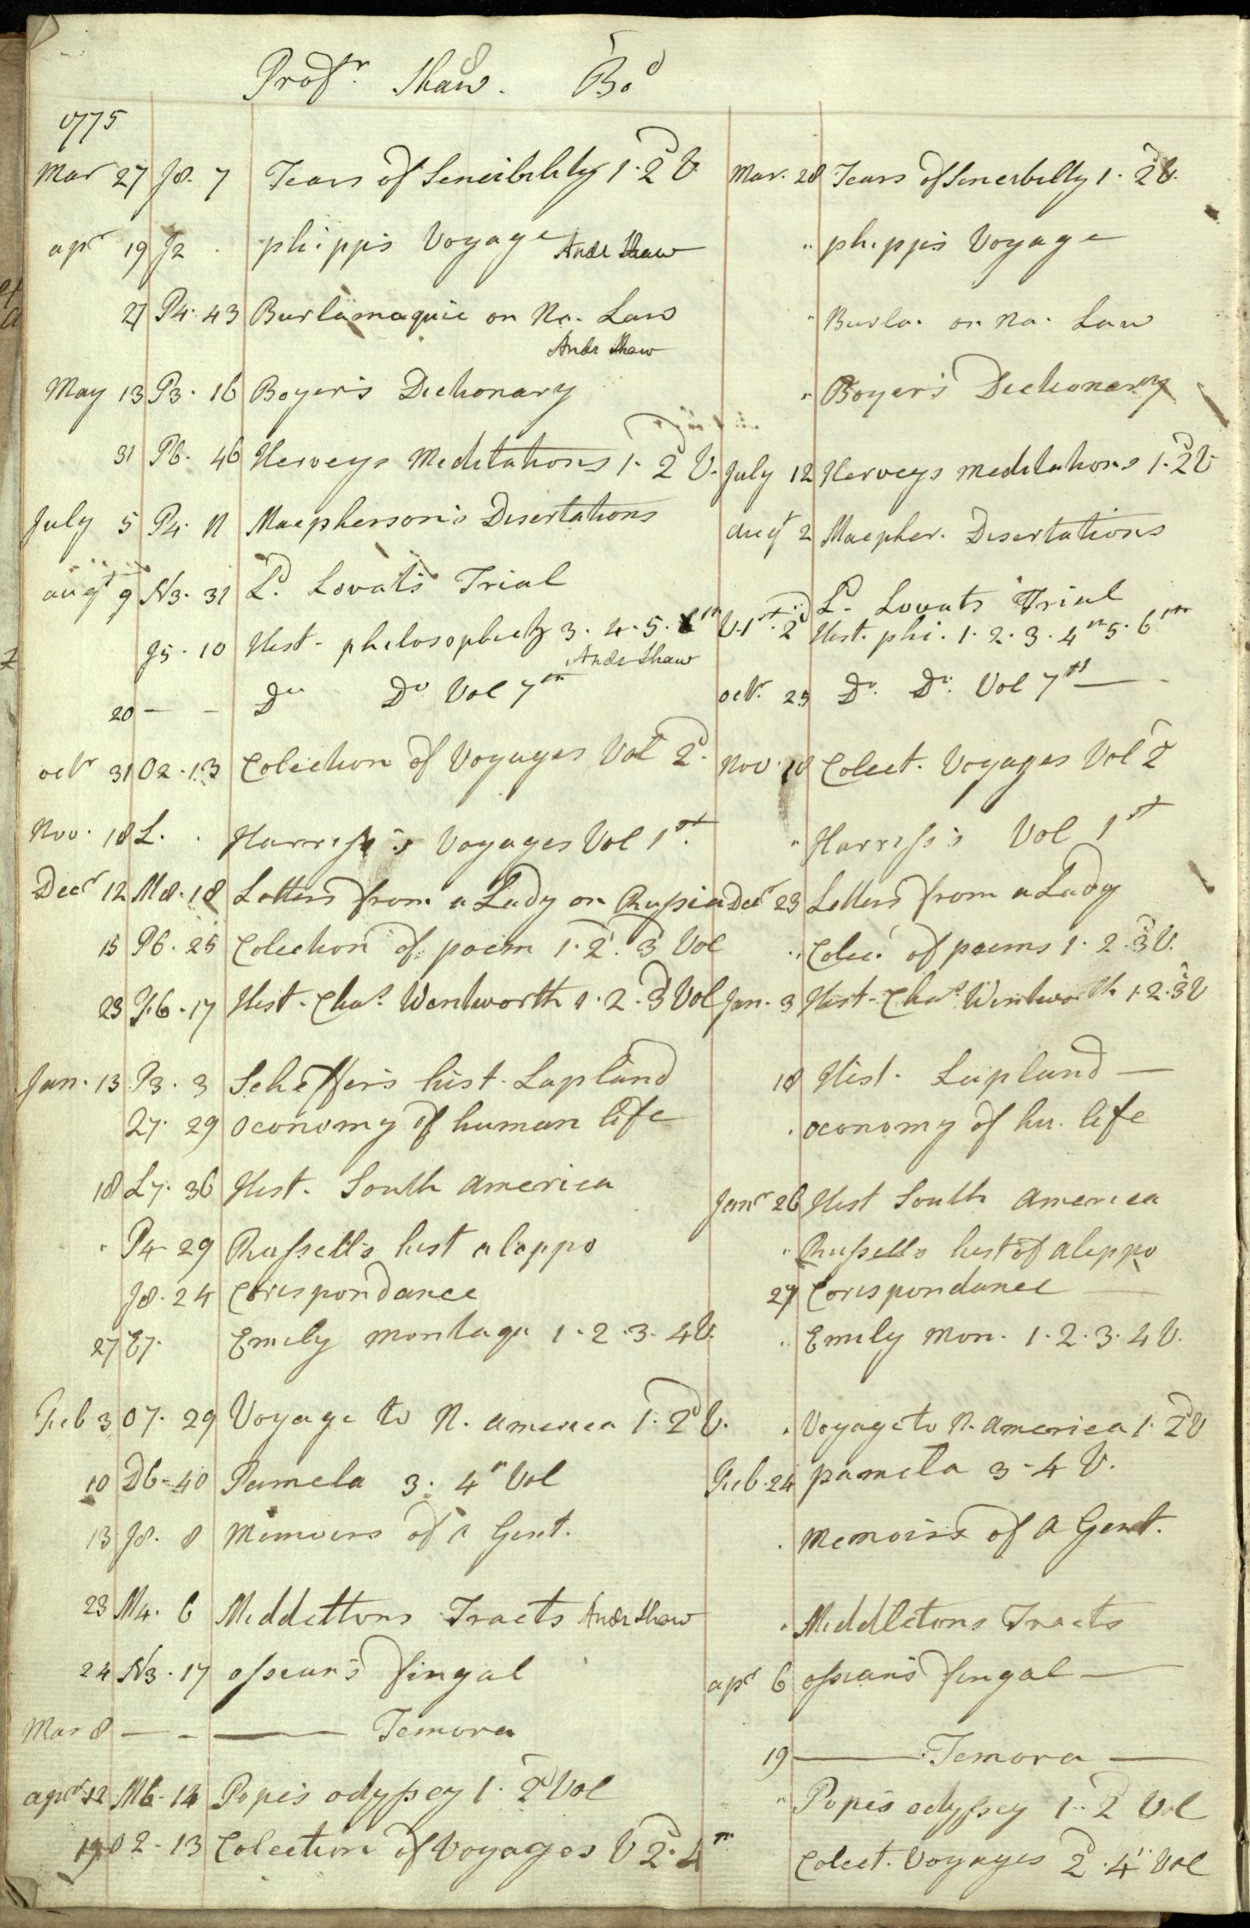 Profr. Shaw. Bod
1775
Mar 27 J8. 7 Tears of Sencibility 1. 2d V. Mar. 28 Tears of Sencibilty 1. 2d V.
apr 19 J2 . phippis Voyage Andr Shaw " phippis Voyage
27 P4. 43 Burlamaquie on Na. Law " Burla. on Na. Law
Andr Shaw
May 13 P3. 16 Boyer's Dictionary " Boyer's Dictionary
31 P6. 46 Herveys Meditations 1. 2d V. July 12 Herveys meditations 1. 2d V
July 5 P4. 11 Macpherson's Disertations augt 2 Macpher. Disertations
augt 9 N3. 31 Ld. Lovats Trial Ld. Lovats Trial
J5. 10 Hist. philosophick 3. 4. 5. 6th V. 1st. 2d Hist. phi. 1. 2. 3. 4th 5. 6th
Andr Shaw
20 — — Do Do Vol 7th octr. 25 Do. Do. Vol 7th —
octr 31 O2. 13 Colection of Voyages Vol 2d. Nov. 18 Colect. Voyages Vol 2d
Nov. 18 L. . Harriss's Voyages Vol 1st. " Harriss's Vol 1st
Decr 12 M8. 18 Letters from a Lady on Russia Decr 23 Letters from a Lady
15 P6. 25 Colection of poem 1. 2. 3d Vol " Colec. of poems 1. 2. 3d V.
23 F6. 17 Hist. Chas. Wentworth 1. 2. 3d Vol Jan. 3 Hist. Chas. Wentworth 1. 2. 3d V
Jan. 13 P3. 3 Scheffer's hist. Lapland 18 Hist. Lapland —
27. 29 Oeconomy of human life . oeconomy of hu. life
18 L7. 36 Hist. South america Janr 26 Hist South America
" P4 29 Russell's hist aleppo " Russells hist of aleppo
J8. 24 Corispondance 27 Corispondance —
27 E7. Emily montagu 1. 2. 3. 4 V. " Emily Mon. 1. 2. 3. 4 V.
Feb 3 O7. 29 Voyage to N. america 1. 2d V. . Voyage to N. America 1. 2d V
10 D6. 40 Pamela 3. 4th Vol Feb. 24 pamela 3 - 4 V.
13 J8. 8 Memoirs of a Gent. . Memoirs of A Gent.
23 M4. 6 Middlettons Tracts Andr Shaw " Middletons Tracts
24 N3. 17 ossian's fingal apr 6 ossian's fingal —
Mar 8 — - — Temora 19 — Temora —
apr 12 M6. 14 Popes odyssey 1. 2d Vol " Popes odyssey 1. 2d Vol
19 O2. 13 Colection of Voyages V 2d. 4th Colect. Voyages 2d. 4th Vol